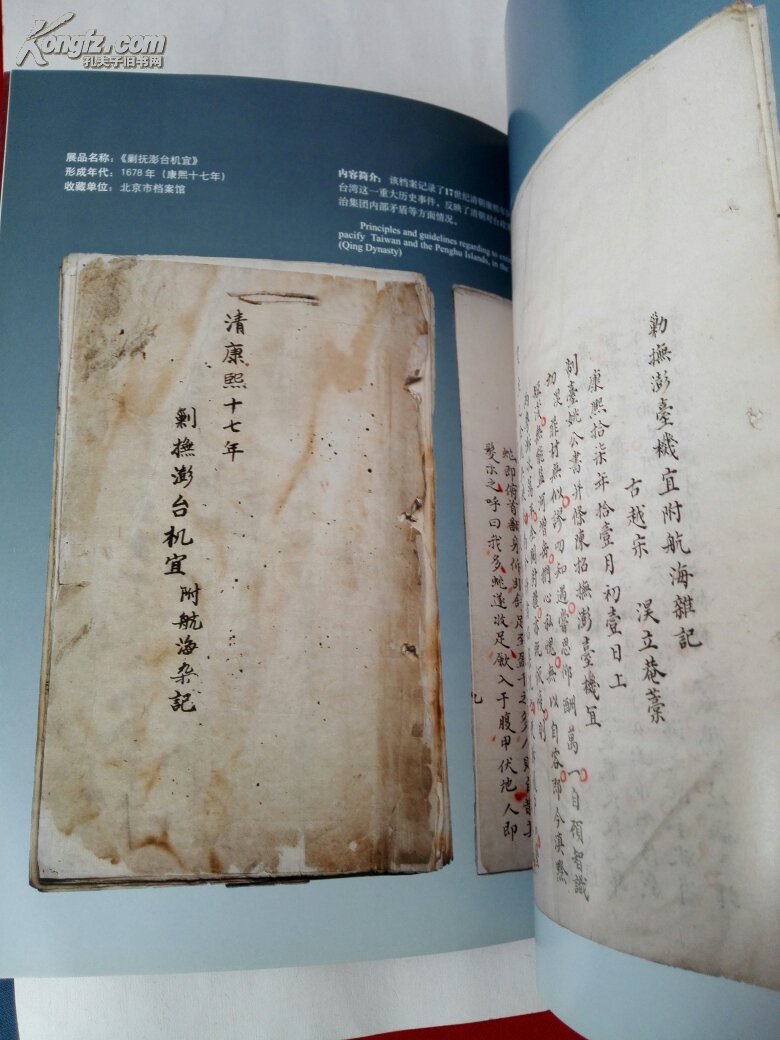 Kongfz.com
孔夫子旧书网
展品名称：《剿抚澎台机宜》
形成年代：1678年（康熙十七年）
收藏单位：北京市档案馆
内容简介：该档案记录了17世纪清朝康熙
台湾这一重大历史事件，反映了清朝对台政
治集团内部矛盾等方面情况。
Principles and guidelines regarding
pacify Taiwan and the Penghu Islands, in the
(Qing Dynasty)
清康熙十七年
剿撫澎台机宜 附航海杂記
勦撫澎臺機宜附航海雜記
古越宋 淏立菴藁
康熙拾柒年拾壹月初壹日上
制臺姚公書并條陳招撫澎臺機宜
切淏菲材無似謬叨知遇嘗思仰酬萬一自顧智識
無以自容即今滇黔
鮡即俯首翻身
嬰示之呼曰我多鮡遂收足歛入于腹甲伏地人即
九